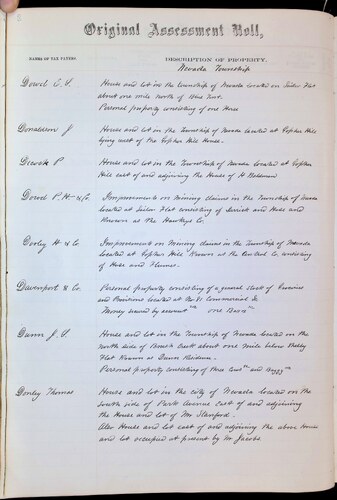 Original Assessment Roll,
NAMES OF TAX PAYERS
DESCRIPTION OF PROPERTY.
Nevada Township
Dowd House and lot in the township of Nevada located on Sailor Flat
about one mile north of
Personal property consisting of one Horse
Donaldson J House and lot in the Township of Nevada located at Gopher Hill
lying east of the Gopher Hill House.
P House and lot in the Township of Nevada located at Gopher
Hill east of and adjoining the House of H
Dowd P. H. & Co. Improvements on Mining claims in the Township of Nevada
located at Sailor Flat consisting of Derrick and Hose and
Known as the Hawkeye Co.
H & Co Improvements on Mining claims in the Township of Nevada
located at Gopher Hill Known as the Co. consisting
of Hose and Flumes.
Davenport & Co. Personal property consisting of a general stock of Groceries
and Provisions located at No 51 Commercial St
Money loaned by account one
Dunn J. House and lot in the Township of Nevada located on the
north side of Brush Creek about one mile below
Flat Known as Dunn Residence.
Personal property consisting of three and Buggy
Donley Thomas House and lot in the city of Nevada located on the
south side of Park Avenue East of and adjoining
the House and lot of Mr Stanford.
Also House and lot east of and adjoining the above House
and lot occupied at present by Mr Jacobs